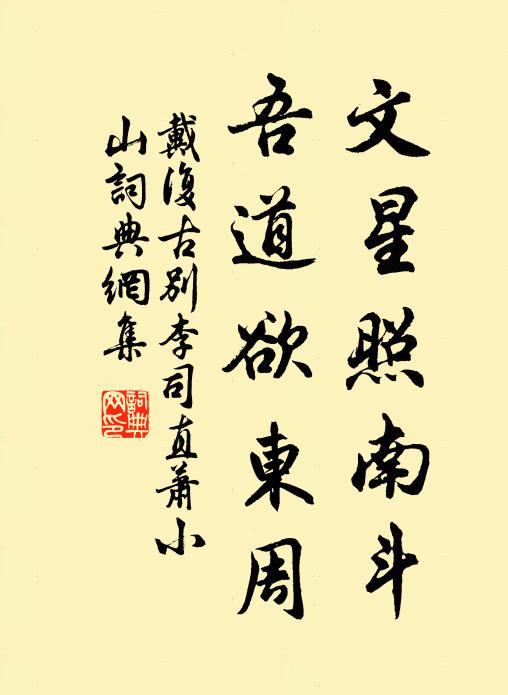 文星照南斗
吾道欲東周
戴復古別李司直蕭小
山詞典網集
詞典網印